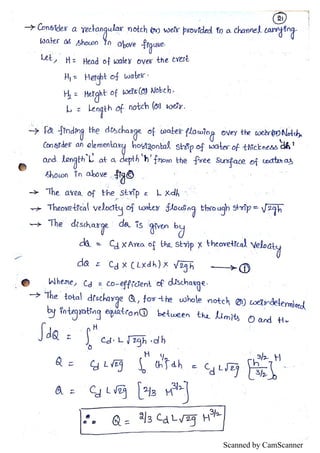 21
→ Consider a rectangular notch (or) weir provided in a channel carrying
water as shown in above figure.
Let, H = Head of water over the crest
H₁ = Height of water.
H₂ = Height of weir (or) Notch.
L = Length of notch (or) weir.
→ For finding the discharge of water flowing over the weir (or) Notch
Consider an elementary horizontal strip of water of thickness dh'
and length 'L' at a depth 'h' from the free surface of water as
shown in above fig
→ The area of the strip = L x dh
→ Theoretical velocity of water flowing through strip = √2gh
→ The discharge dQ is given by
dQ = Cd x Area of the strip x theoretical Velocity
dQ = Cd x (L x dh) x √2gh → ①
Where, Cd = co-efficient of discharge.
→ The total discharge Q, for the whole notch (or) weir determined
by integrating equation ① between the limits O and H.
∫dQ = ∫₀ᴴ Cd. L √2gh . dh
Q = Cd L √2g ∫₀ᴴ (h)^1/2 dh = Cd L √2g [h^3/2 / 3/2]₀ᴴ
Q = Cd L √2g [2/3 H^3/2]
∴ Q = 2/3 Cd L √2g H^3/2
Scanned by CamScanner